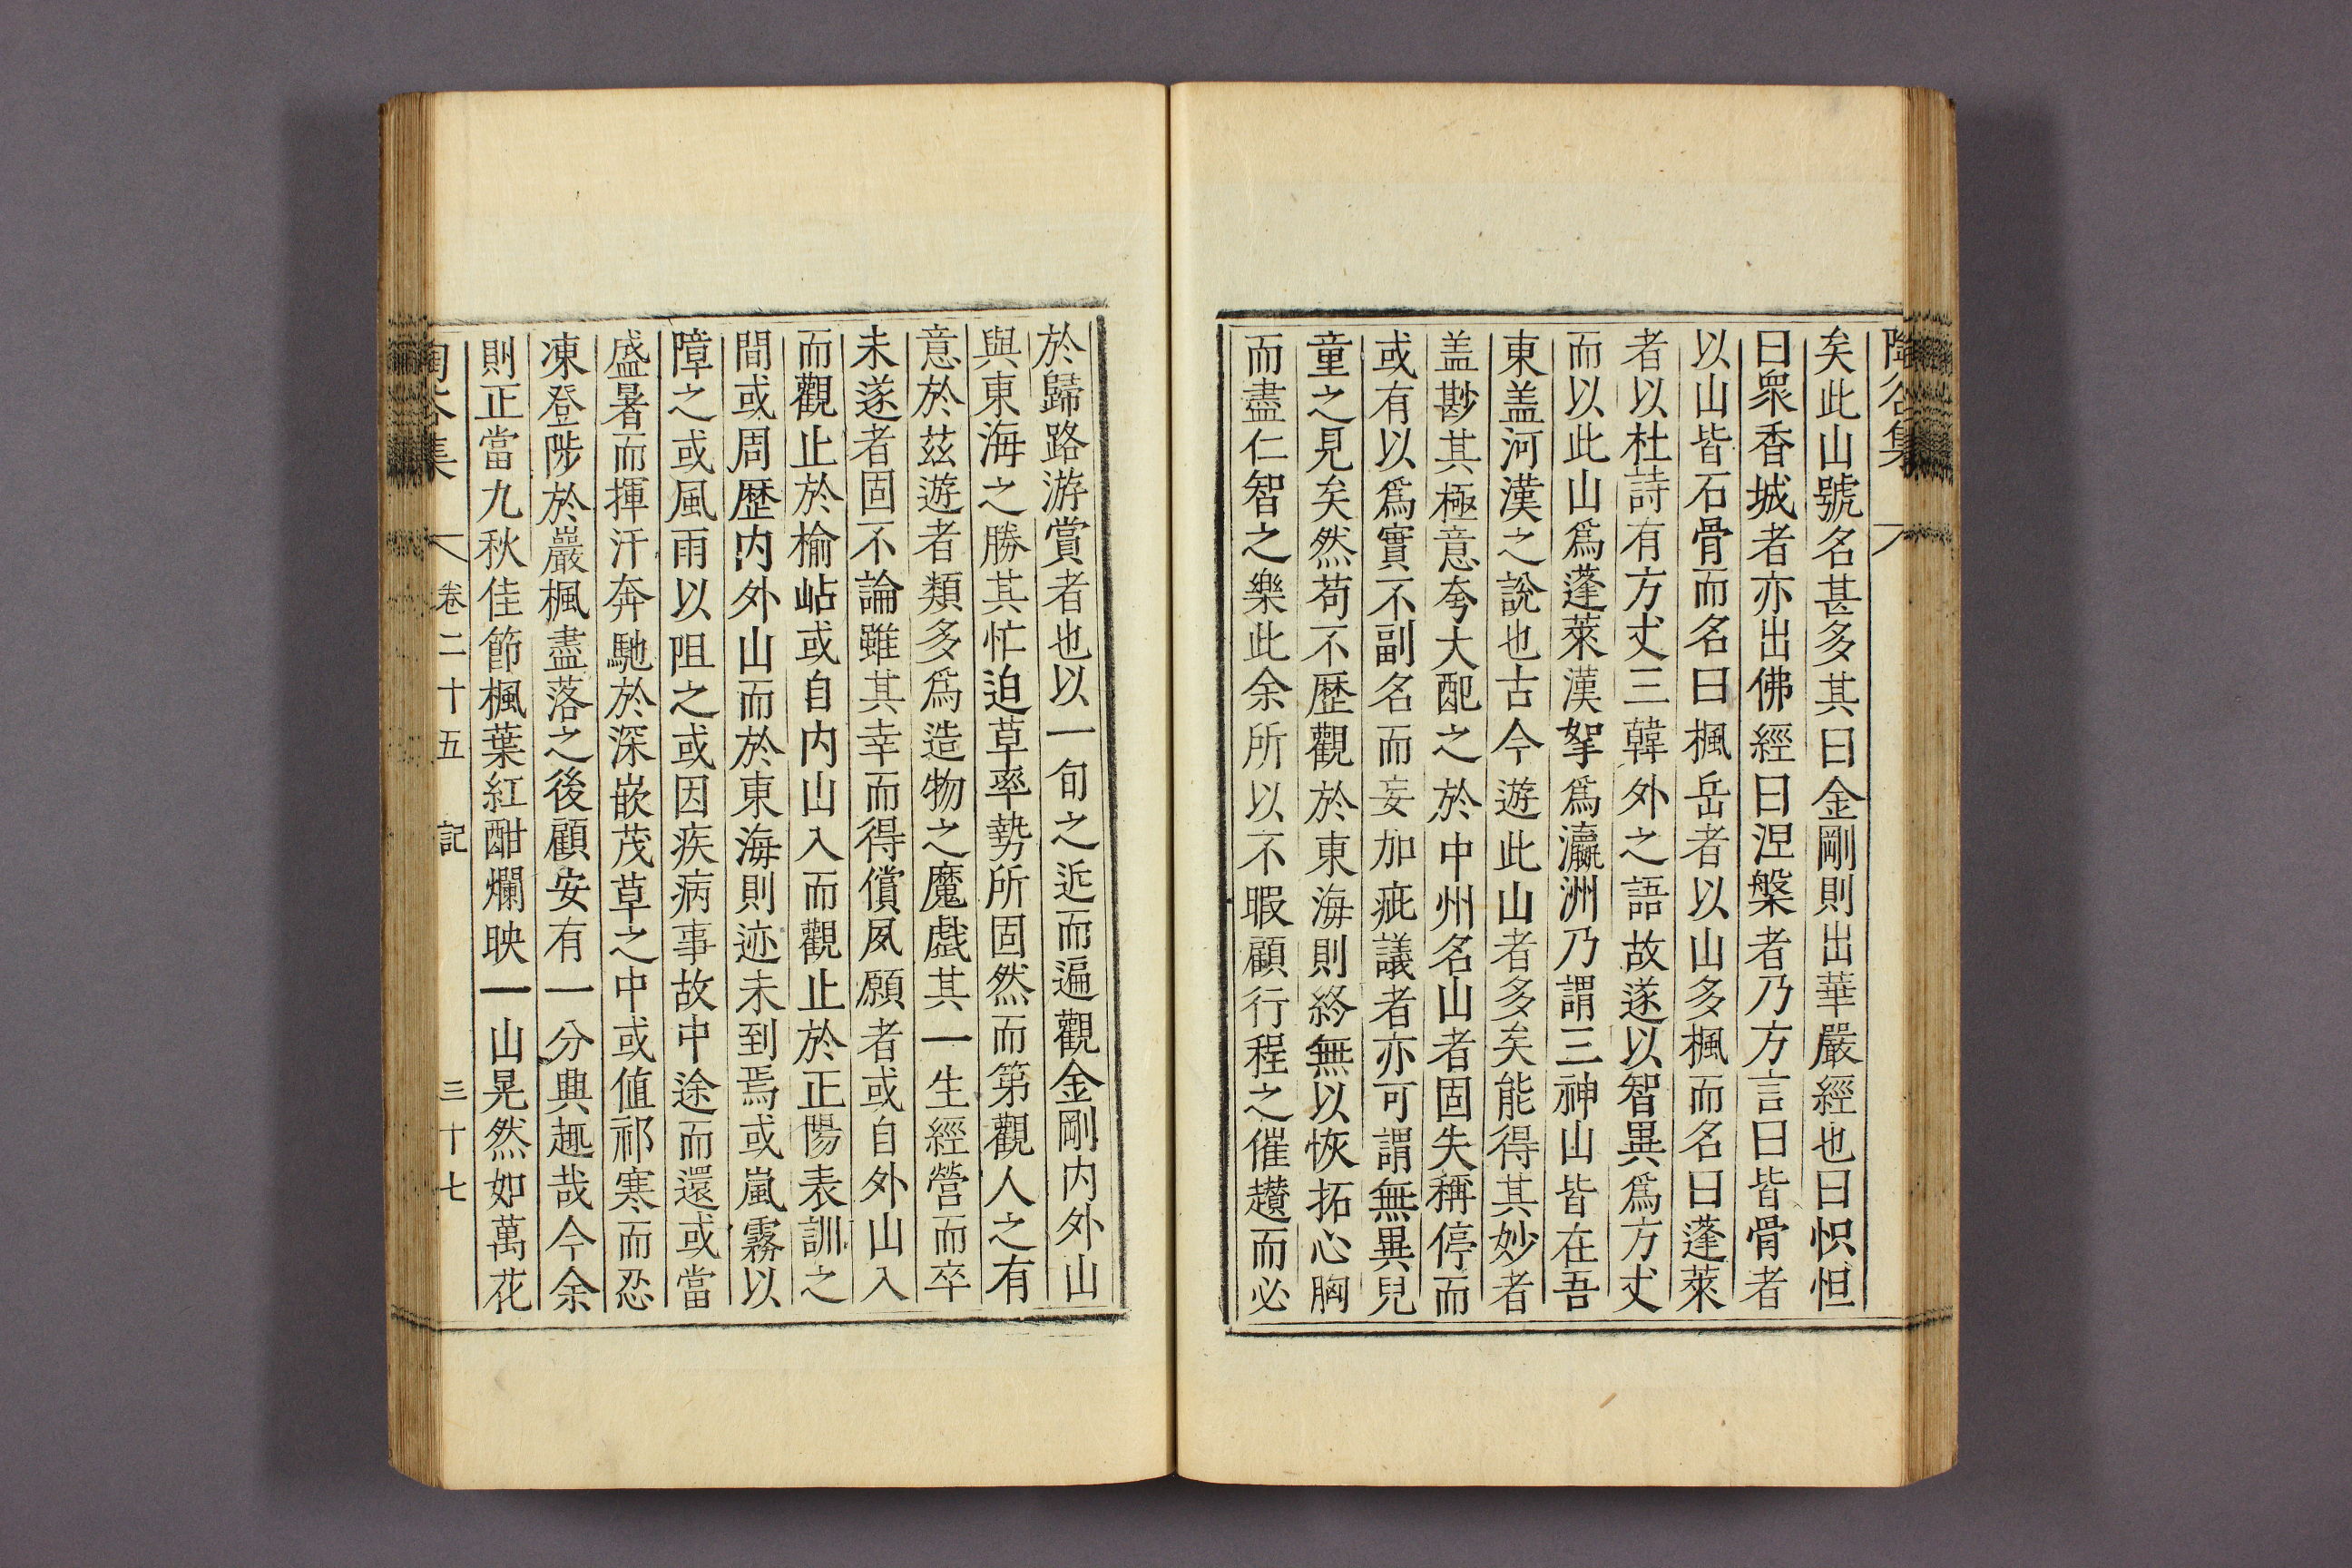 陶谷集
矣此山號名甚多其曰金剛則出華嚴經也曰怾怛
曰衆香城者亦出佛經曰涅槃者乃方言曰皆骨者
以山皆石骨而名曰楓岳者以山多楓而名曰蓬萊
者以杜詩有方丈三韓外之語故遂以智異爲方丈
而以此山爲蓬萊漢挐爲瀛洲乃謂三神山皆在吾
東盖河漢之說也古今遊此山者多矣能得其妙者
盖尠其極意夸大配之於中州名山者固失稱停而
或有以爲實不副名而妄加疵議者亦可謂無異兒
童之見矣然苟不歷觀於東海則終無以恢拓心胸
而盡仁智之樂此余所以不暇顧行程之催趲而必
於歸路游賞者也以一旬之近而遍觀金剛内外山
與東海之勝其忙迫草率勢所固然而第觀人之有
意於茲遊者類多爲造物之魔戱其一生經營而卒
未遂者固不論雖其幸而得償夙願者或自外山入
而觀止於楡岾或自内山入而觀止於正陽表訓之
間或周歷内外山而於東海則迹未到焉或嵐霧以
障之或風雨以阻之或因疾病事故中途而還或當
盛暑而揮汗奔馳於深嵌茂草之中或値祁寒而忍
凍登陟於巖楓盡落之後顧安有一分興趣哉今余
則正當九秋佳節楓葉紅酣爛映一山晃然如萬花
陶谷集 卷二十五 記 三十七